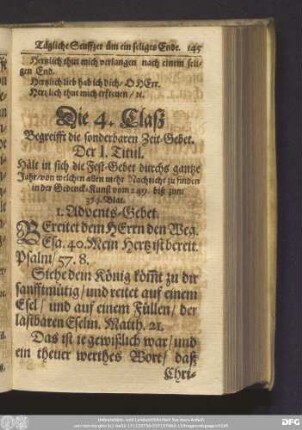 Tägliche Seuffzer üm ein seliges Ende. 145
Hertzlich thut mich verlangen nach einem seli-
gen End.
Hertzlich lieb hab ich dich / O HErr.
Hertzlich thut mich erfreuen / ꝛc.
Die 4. Claß
Begreifft die sonderbaren Zeit-Gebet.
Der I. Titul.
Hält in sich die Fest-Gebet durchs gantze
Jahr / von welchen allen mehr Nachricht zu finden
in der Gedenck-Kunst vom 249. biß zum
Blat.
1. Advents-Gebet.
BEreitet dem HErrn den Weg.
Esa. 40. Mein Hertz ist bereit.
Psalm / 57. 8.
Siehe dein König kom̃t zu dir
sanfftmütig / und reitet auf einem
Esel / und auf einem Füllen / der
lastbaren Eselin. Matth. 21.
Das ist je gewißlich war / und
ein theuer werthes Wort / daß
Chri-
DFG